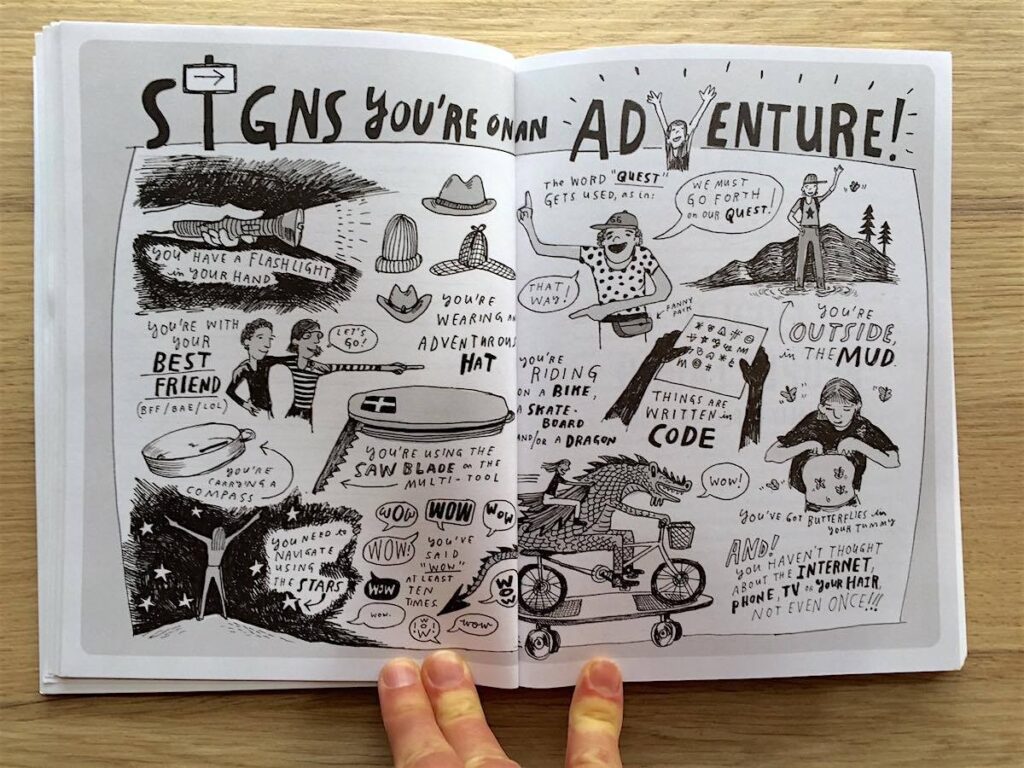 SIGNS YOU'RE ON AN ADVENTURE!
YOU HAVE A FLASHLIGHT
in YOUR HAND
YOU'RE
WEARING AN
ADVENTUROUS
HAT
YOU'RE WITH
YOUR
BEST
FRIEND
(BFF/BAE/LOL)
LET'S
GO!
YOU'RE
CARRYING A
COMPASS
YOU'RE USING THE
SAW BLADE on THE
MULTI-TOOL
YOU NEED to
NAVIGATE
USING
THE STARS
WOW
WOW
WOW
WOW!
YOU'VE
SAID
"WOW"
AT LEAST
TEN
TIMES.
WOW
WOW.
WOW!
WOW
WOW
THE WORD "QUEST"
GETS USED, as in:
WE MUST
GO FORTH
on OUR QUEST!
THAT
WAY!
FANNY
PACK
YOU'RE
OUTSIDE,
in THE MUD.
YOU'RE
RIDING
ON A BIKE,
A SKATE-
BOARD
AND/OR A DRAGON
THINGS ARE
WRITTEN in
CODE
WOW!
YOU'VE GOT BUTTERFLIES in
YOUR TUMMY
AND!
YOU HAVEN'T THOUGHT
ABOUT THE INTERNET,
PHONE, TV or YOUR HAIR.
NOT EVEN ONCE!!!